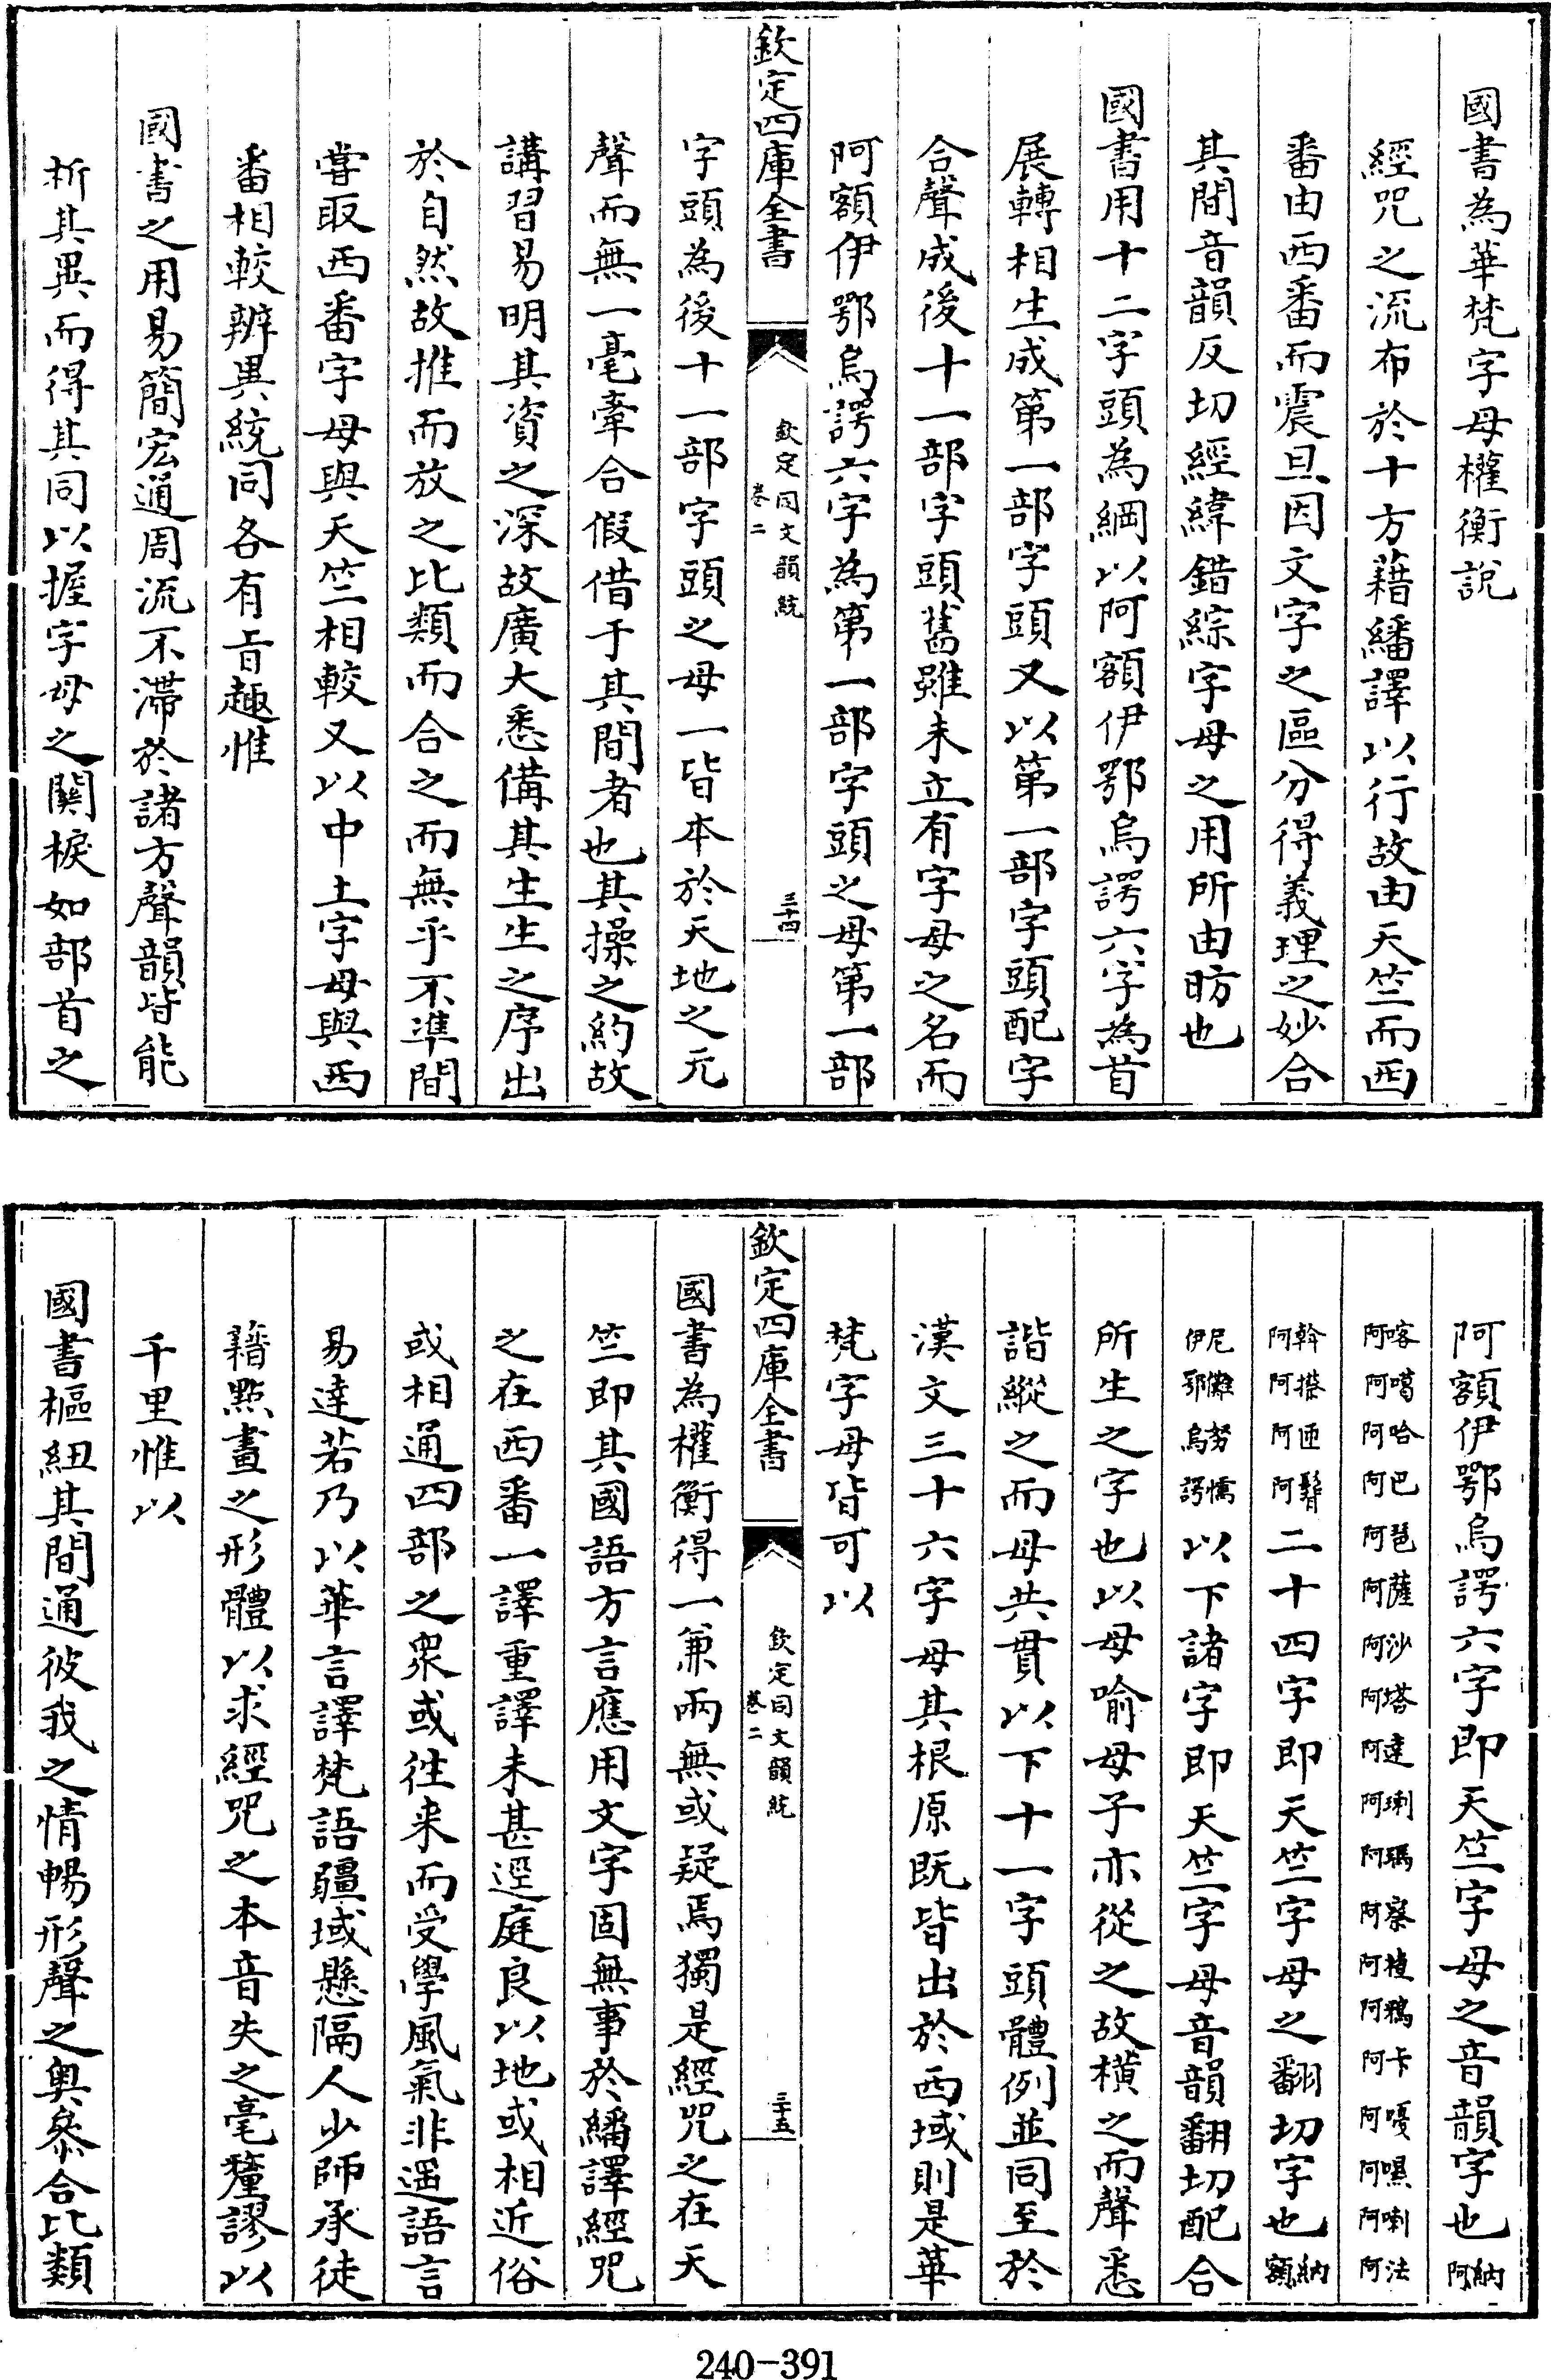 國書為華梵字母權衡說
經咒之流布於十方藉繙譯以行故由天竺而西
番由西番而震旦因文字之區分得義理之妙合
其間音韻反切經緯錯綜字母之用所由昉也
國書用十二字頭為綱以阿額伊鄂烏諤六字為首
展轉相生成第一部字頭又以第一部字頭配字
合聲成後十一部字頭舊雖未立有字母之名而
阿額伊鄂烏諤六字為第一部字頭之母第一部
欽定四庫全書
欽定同文韻統
卷二
三十四
字頭為後十一部字頭之母一皆本於天地之元
聲而無一毫牽合假借于其間者也其操之約故
講習易明其資之深故廣大悉備其生生之序出
於自然故推而放之比類而合之而無乎不準間
嘗取西番字母與天竺相較又以中土字母與西
番相較辨異統同各有旨趣惟
國書之用易簡宏通周流不滯於諸方聲韻皆能
析其異而得其同以握字母之關棙如部首之
阿額伊鄂烏諤六字即天竺字母之音韻字也納阿
喀阿噶阿哈阿巴阿琶阿薩阿沙阿塔阿達阿瑪阿察阿楂阿鴉阿卡阿嘎阿喇阿法阿
斡阿搭阿匝阿二十四字即天竺字母之翻切字也納額
尼伊儺鄂努烏懦諤以下諸字即天竺字母音韻翻切配合
所生之字也以母喻母子亦從之故橫之而聲悉
諧縱之而母共貫以下十一字頭體例並同至於
漢文三十六字母其根原既皆出於西域則是華
梵字母皆可以
欽定四庫全書
欽定同文韻統
卷二
三十五
國書為權衡得一兼兩無或疑焉獨是經咒之在天
竺即其國語方言應用文字固無事於繙譯經咒
之在西番一譯重譯未甚逕庭良以地或相近俗
或相通四部之眾或徃来而受學風氣非遥語言
易達若乃以華言譯梵語疆域懸隔人少師承徒
藉點畫之形體以求經咒之本音失之毫釐謬以
千里惟以
國書樞紐其間通彼我之情暢形聲之奥叅合比類
240-391